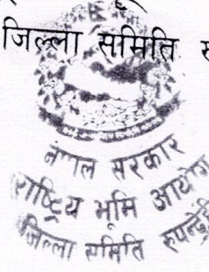 जिल्ला समिति
नेपाल सरकार
राष्ट्रिय भूमि आयोग
जिल्ला समिति रुपन्देही